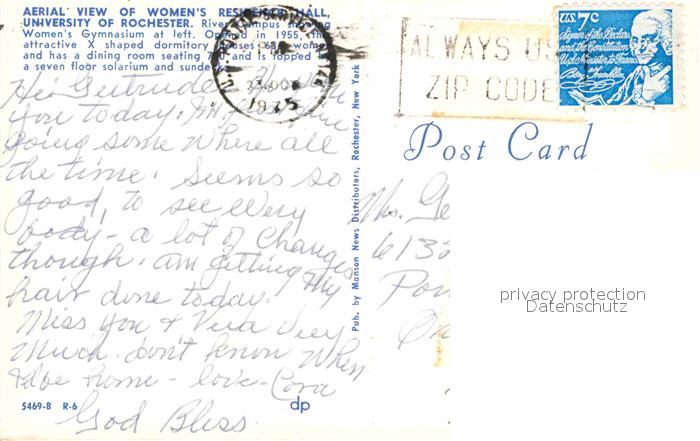 AERIAL VIEW OF WOMEN'S RESIDENCE HALL,
UNIVERSITY OF ROCHESTER. River Campus showing
Women's Gymnasium at left. Opened in 1955, the
attractive X shaped dormitory houses women
and has a dining room seating and is topped by
a seven floor solarium and sundeck.
Hi Gertrude
you today.
going some where all
the time. Seems so
good to see every
body - a lot of changes
though. am getting my
hair done today.
Miss you & Vera very
much. don't know when
I'd be home - love - Cora
God Bless
5469-B R-6
dp
Pub. by Manson News Distributors, Rochester, New York
1975
ALWAYS US
ZIP CODE
U.S. 7c
Signer of the Declar
and the Constitution
U.S. Minister to France
Benj Franklin
Post Card
Ms. Ge
613
Po
privacy protection
Datenschutz